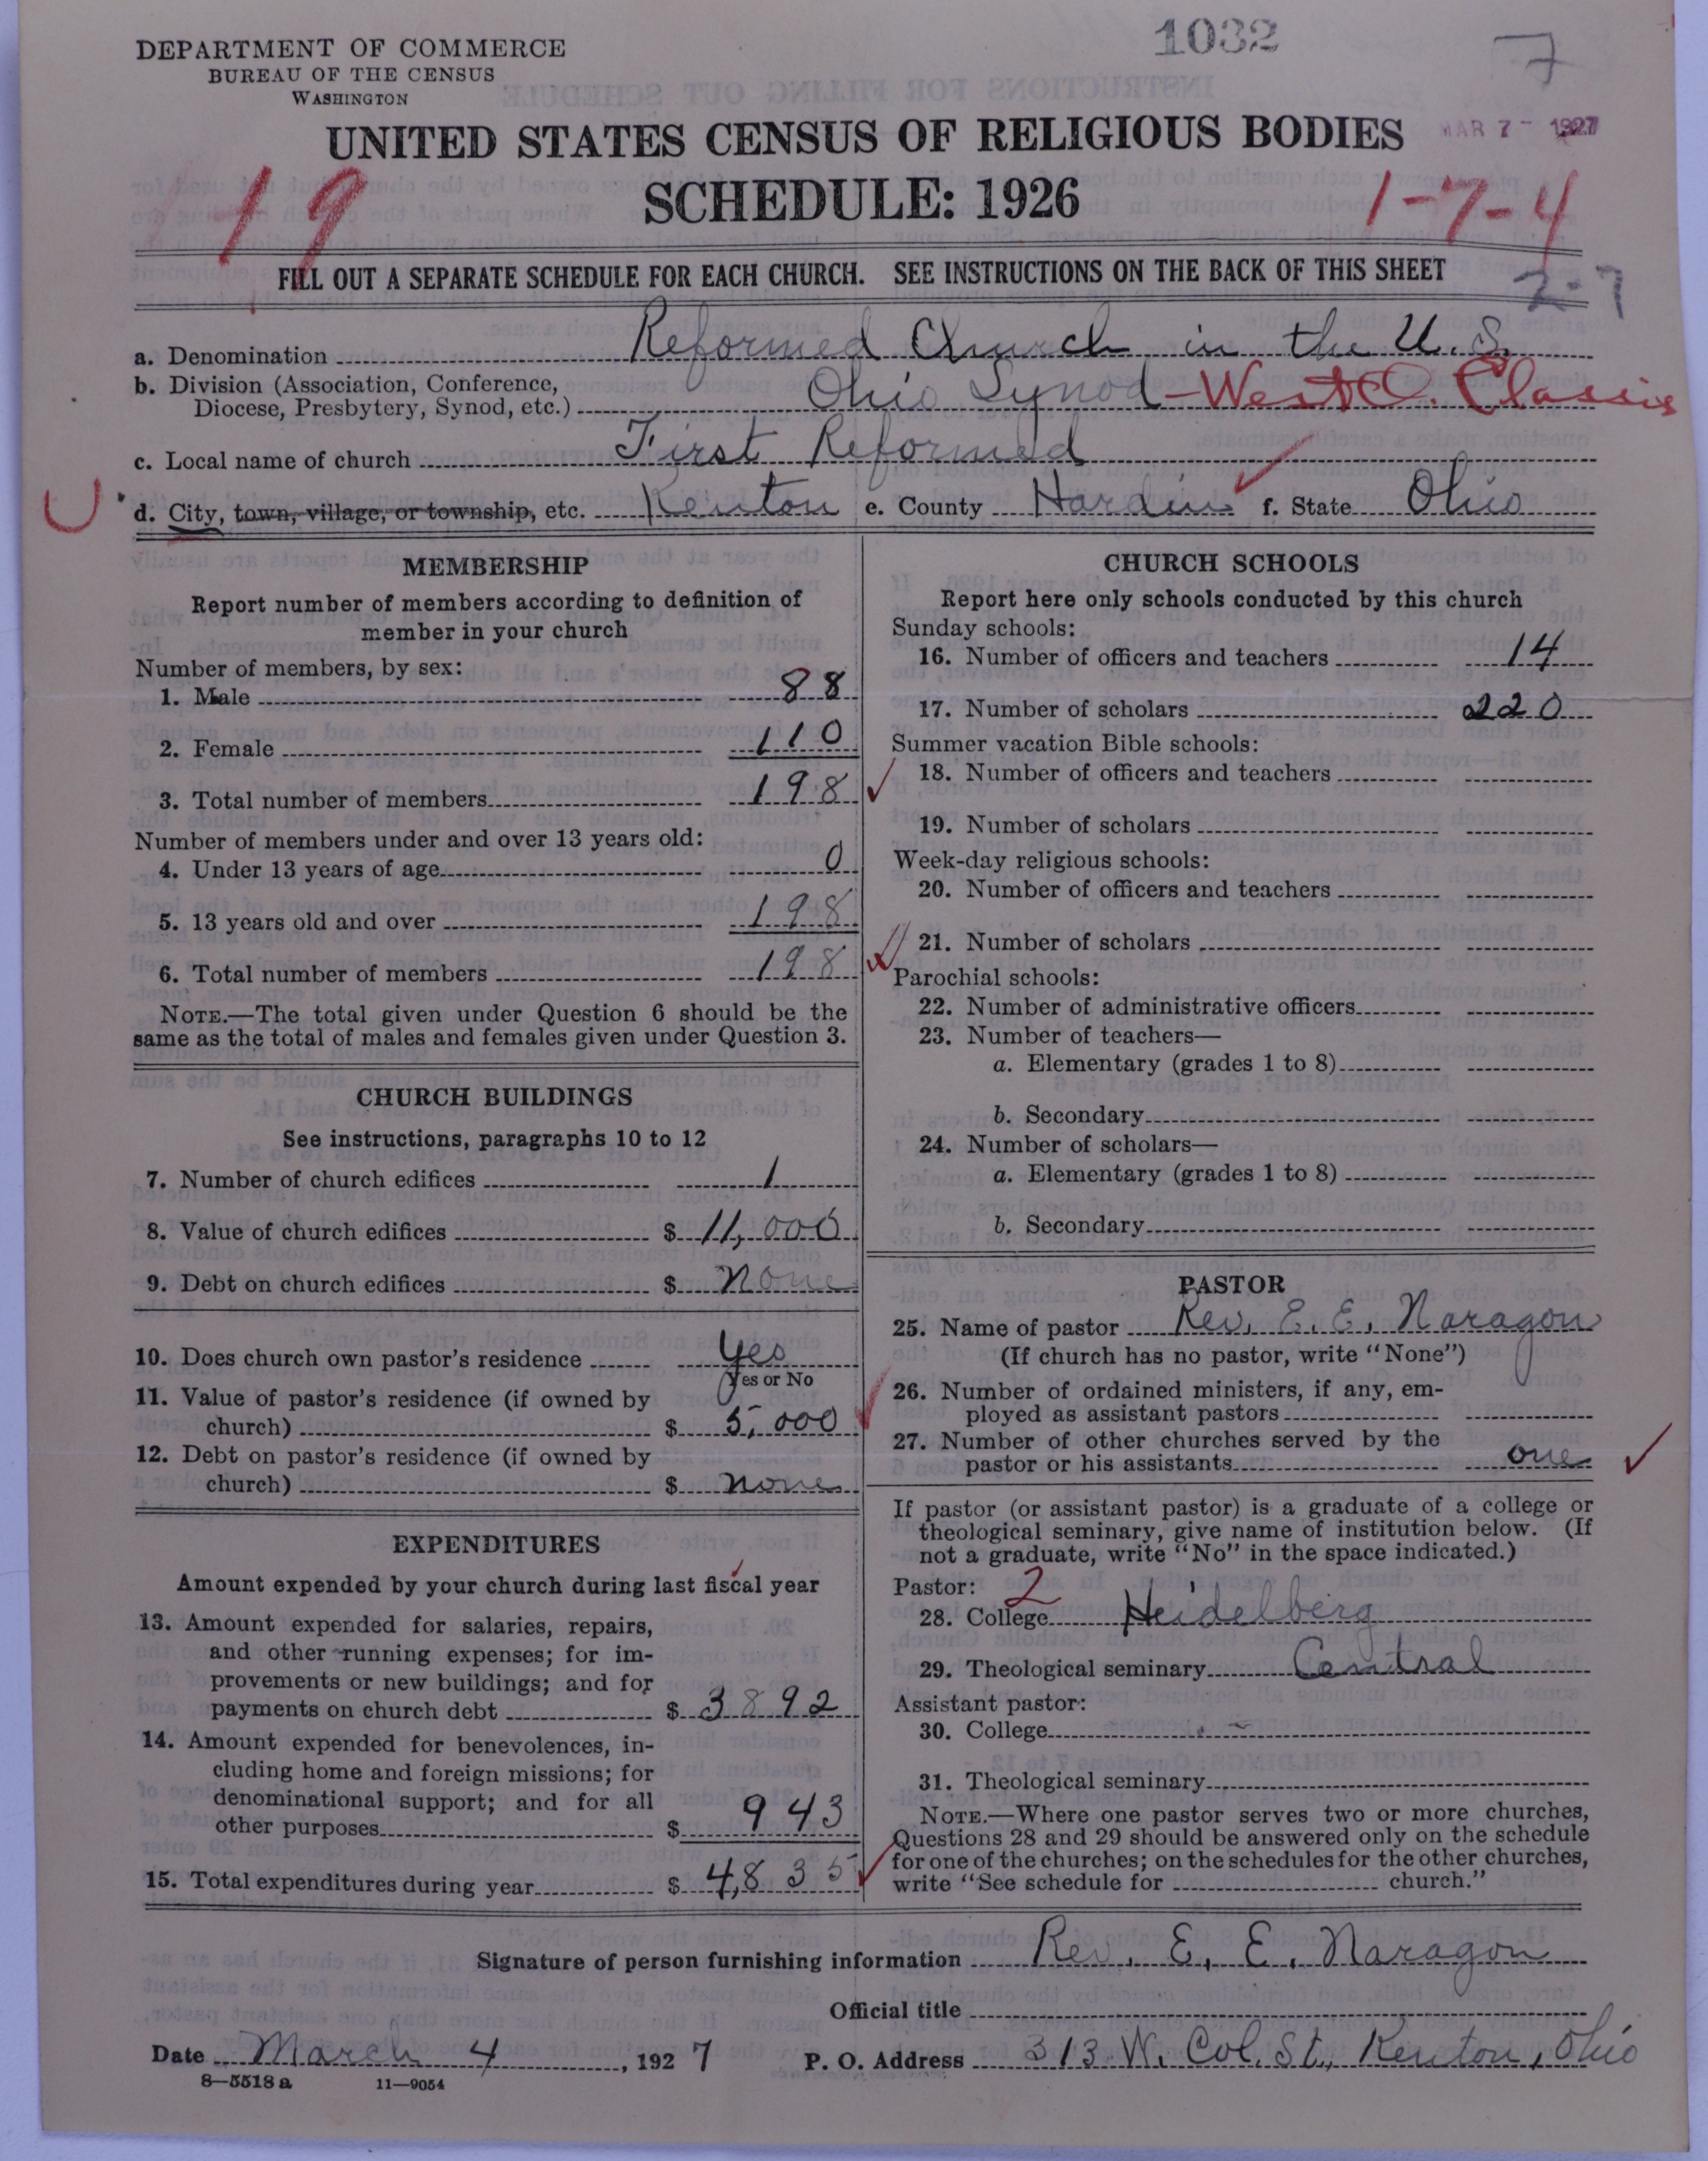 1032
7
DEPARTMENT OF COMMERCE
BUREAU OF THE CENSUS
WASHINGTON
UNITED STATES CENSUS OF RELIGIOUS BODIES
MAR 7 - 1927
SCHEDULE: 1926
19
1-7-4
FILL OUT A SEPARATE SCHEDULE FOR EACH CHURCH. SEE INSTRUCTIONS ON THE BACK OF THIS SHEET
2-7
a. Denomination Reformed Church in the U.S.
b. Division (Association, Conference,
Diocese, Presbytery, Synod, etc.) Ohio Synod - West O. Classis
c. Local name of church First Reformed
d. City, town, village, or township, etc. Kenton e. County Hardin f. State Ohio
MEMBERSHIP
Report number of members according to definition of
member in your church
Number of members, by sex:
1. Male 88
2. Female 110
3. Total number of members 198
Number of members under and over 13 years old:
4. Under 13 years of age 0
5. 13 years old and over 198
6. Total number of members 198
NOTE.—The total given under Question 6 should be the
same as the total of males and females given under Question 3.
CHURCH BUILDINGS
See instructions, paragraphs 10 to 12
7. Number of church edifices 1
8. Value of church edifices $ 11,000
9. Debt on church edifices $ None
10. Does church own pastor's residence Yes
Yes or No
11. Value of pastor's residence (if owned by
church) $ 5,000
12. Debt on pastor's residence (if owned by
church) $ none
EXPENDITURES
Amount expended by your church during last fiscal year
13. Amount expended for salaries, repairs,
and other running expenses; for im-
provements or new buildings; and for
payments on church debt $ 3892
14. Amount expended for benevolences, in-
cluding home and foreign missions; for
denominational support; and for all
other purposes $ 943
15. Total expenditures during year $ 4,835
CHURCH SCHOOLS
Report here only schools conducted by this church
Sunday schools:
16. Number of officers and teachers 14
17. Number of scholars 220
Summer vacation Bible schools:
18. Number of officers and teachers
19. Number of scholars
Week-day religious schools:
20. Number of officers and teachers
21. Number of scholars
Parochial schools:
22. Number of administrative officers
23. Number of teachers—
a. Elementary (grades 1 to 8)
b. Secondary
24. Number of scholars—
a. Elementary (grades 1 to 8)
b. Secondary
PASTOR
25. Name of pastor Rev. E. E. Naragon
(If church has no pastor, write "None")
26. Number of ordained ministers, if any, em-
ployed as assistant pastors
27. Number of other churches served by the
pastor or his assistants one
If pastor (or assistant pastor) is a graduate of a college or
theological seminary, give name of institution below. (If
not a graduate, write "No" in the space indicated.)
Pastor: 2
28. College Heidelberg
29. Theological seminary Central
Assistant pastor:
30. College
31. Theological seminary
NOTE.—Where one pastor serves two or more churches,
Questions 28 and 29 should be answered only on the schedule
for one of the churches; on the schedules for the other churches,
write "See schedule for church."
Signature of person furnishing information Rev. E. E. Naragon
Official title
Date March 4, 1927 P. O. Address 313 W. Col. St., Kenton, Ohio
8—5518 a 11—9054